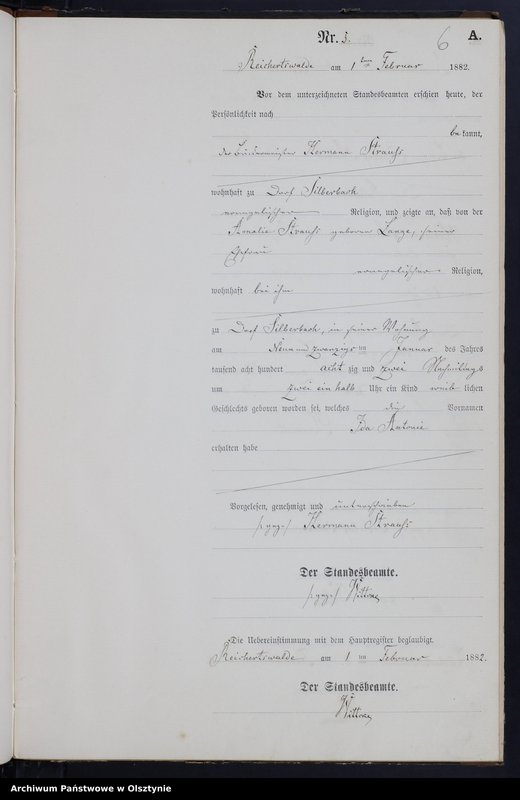 Nr. 5.
6
A.
Reichertswalde am 1 ten Februar 1882.
Vor dem unterzeichneten Standesbeamten erschien heute, der
Persönlichkeit nach
be kannt,
der Hermann Strauß
wohnhaft zu Dorf Silberbach
evangelischer Religion, und zeigte an, daß von der
Amalie Strauß geborene Lange, seiner
Ehefrau
evangelischer Religion,
wohnhaft bei ihm
zu Dorf Silberbach, in seiner Wohnung
am Neunundzwanzigs ten Januar des Jahres
tausend acht hundert acht zig und zwei Nachmittags
um zwei ein halb Uhr ein Kind weib lichen
Geschlechts geboren worden sei, welches die Vornamen
Ida Antonie
erhalten habe
Vorgelesen, genehmigt und unterschrieben
/:gez:/ Hermann Strauß
Der Standesbeamte.
/:gez:/
Die Uebereinstimmung mit dem Hauptregister beglaubigt.
Reichertswalde am 1 ten Februar 1882.
Der Standesbeamte.
Archiwum Państwowe w Olsztynie